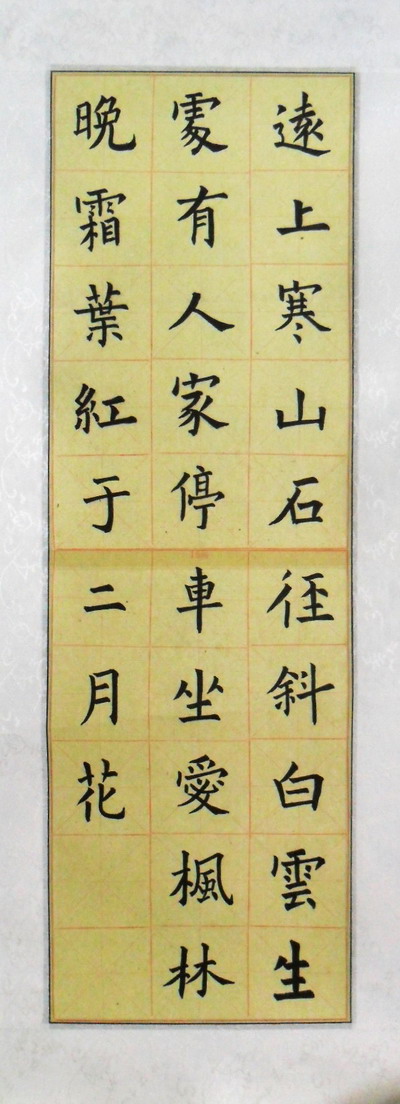 遠上寒山石径斜白雲生
處有人家停車坐愛楓林
晚霜葉紅于二月花